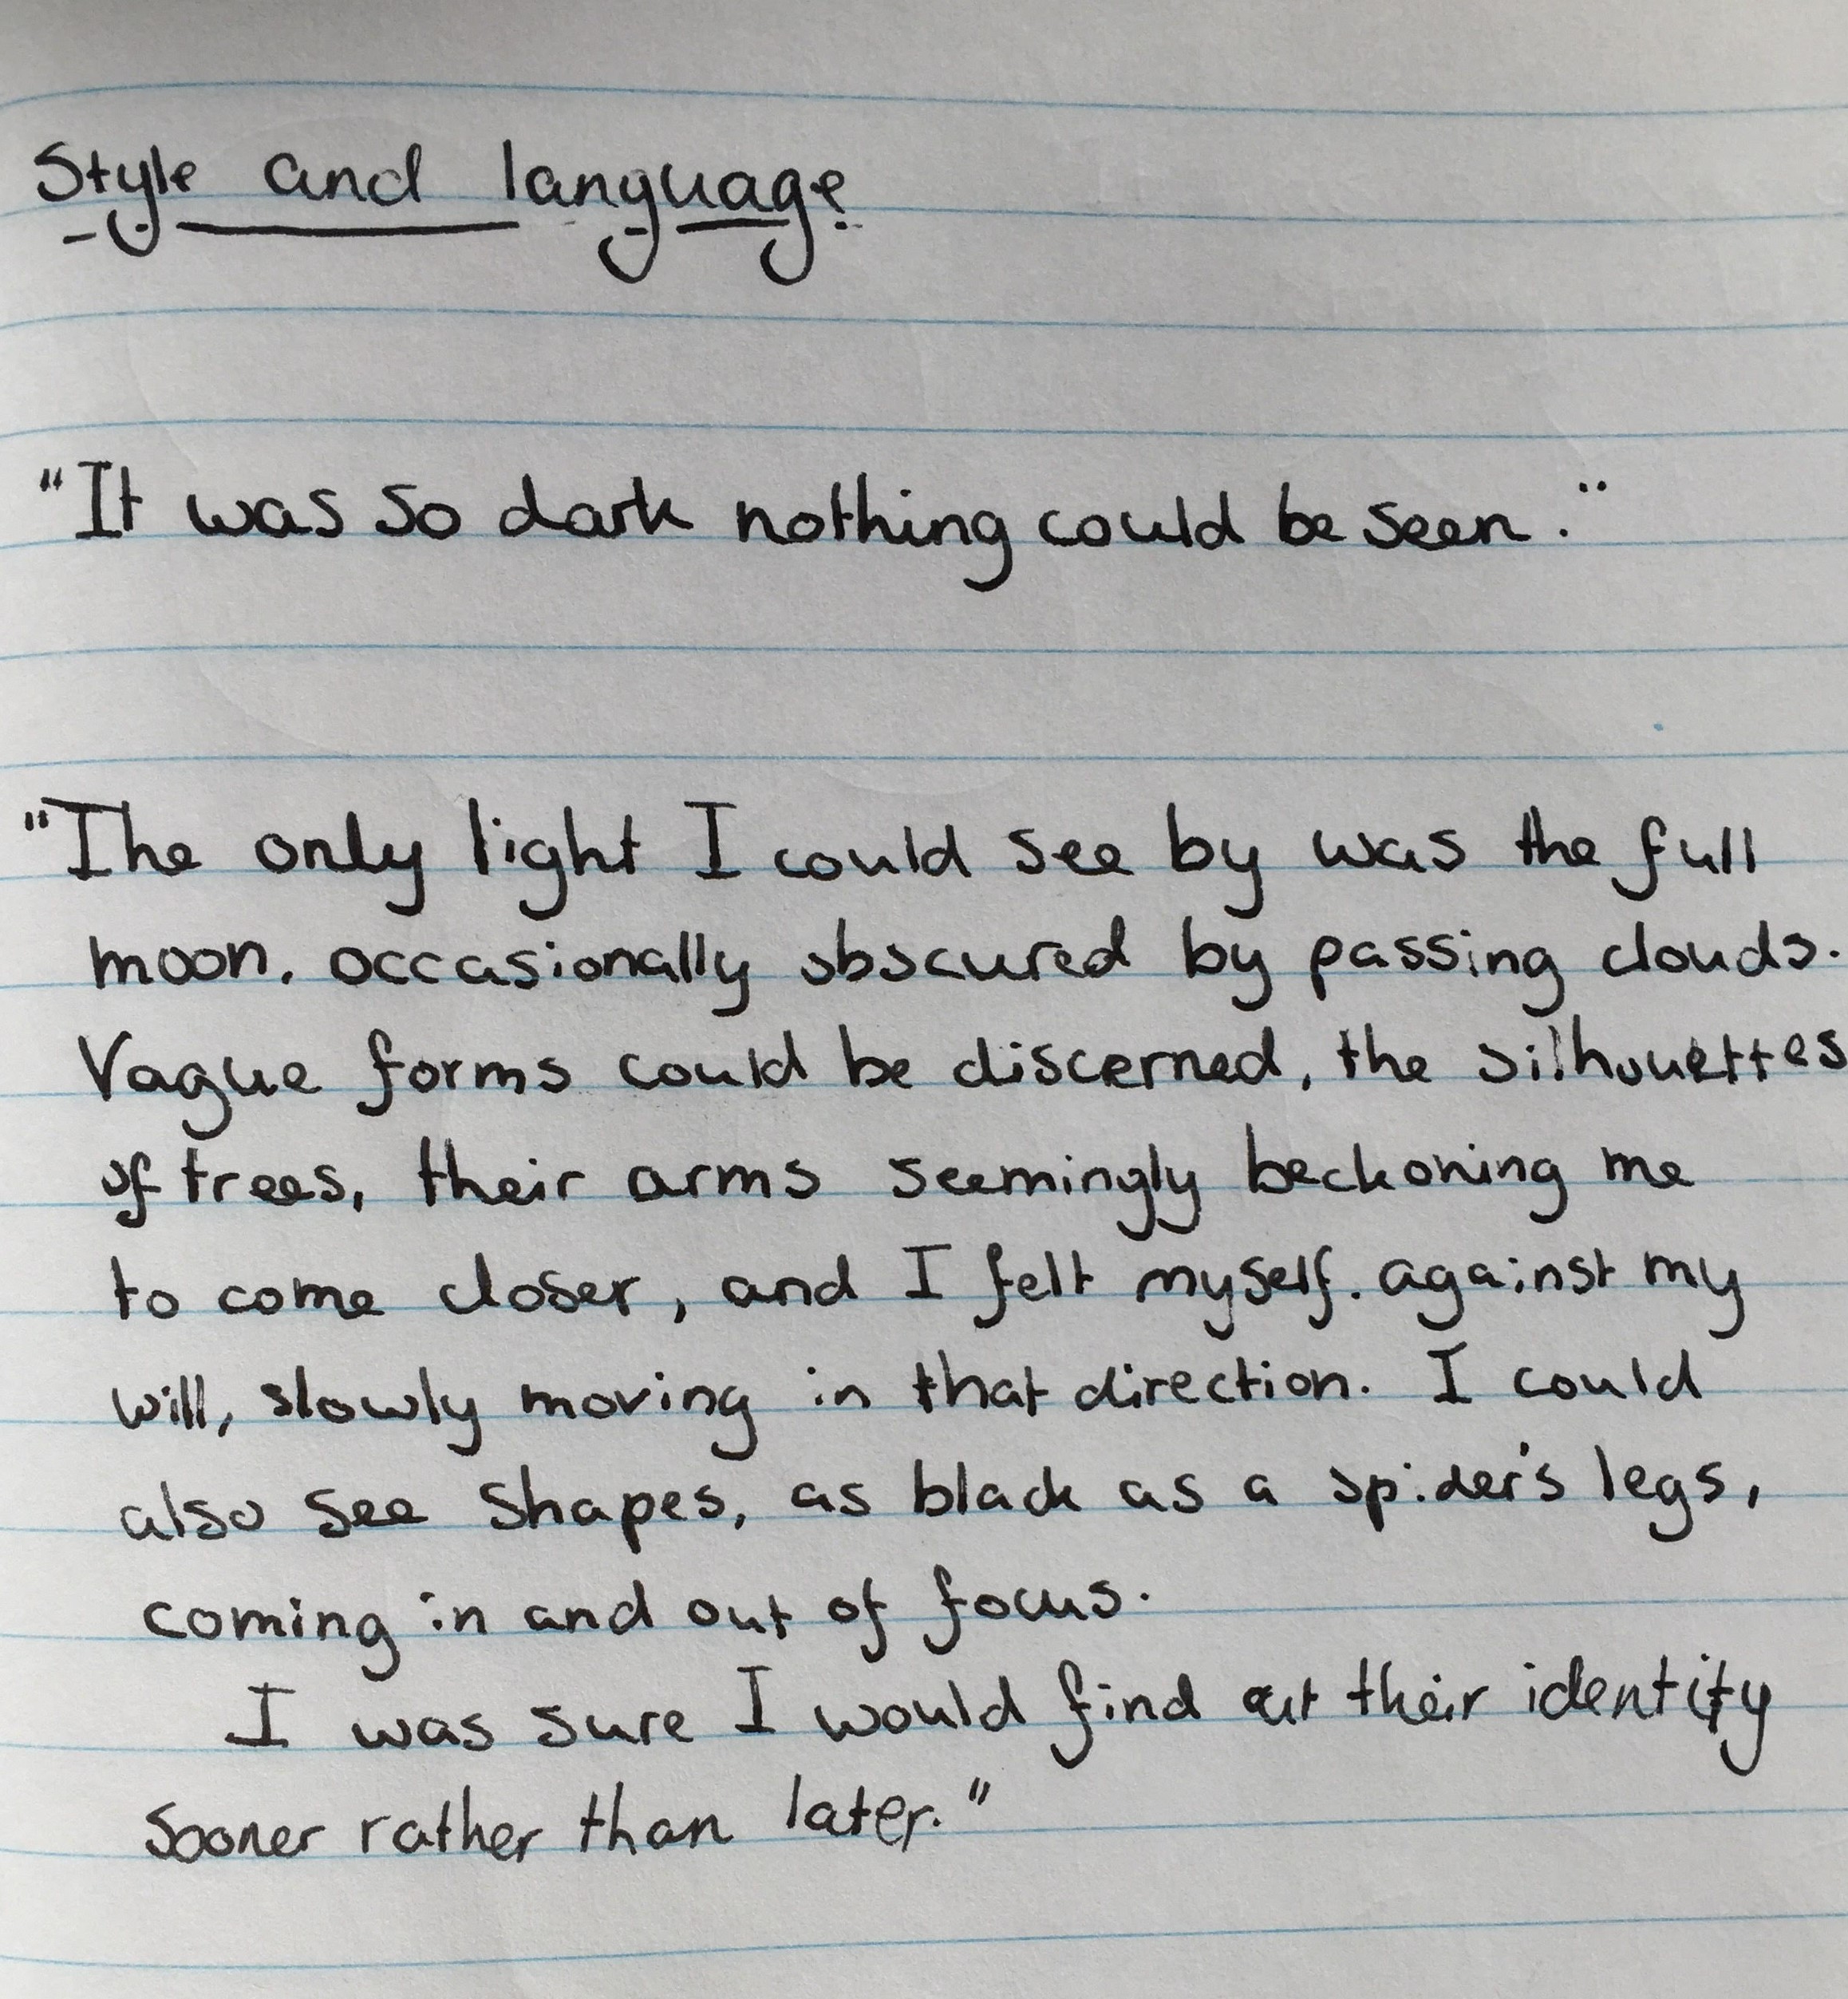 Style and language
"It was so dark nothing could be seen."
"The only light I could see by was the full
moon, occasionally obscured by passing clouds.
Vague forms could be discerned, the silhouettes
of trees, their arms seemingly beckoning me
to come closer, and I felt myself, against my
will, slowly moving in that direction. I could
also see shapes, as black as a spider's legs,
coming in and out of focus.
I was sure I would find out their identity
sooner rather than later."